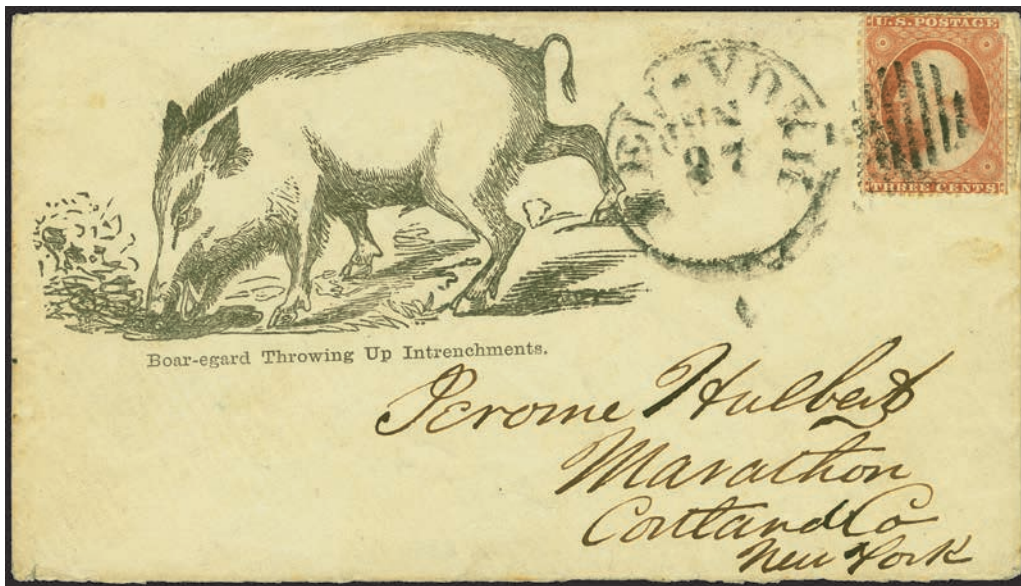 U.S. POSTAGE
THREE CENTS
NEW-YORK
JUN
27
Boar-egard Throwing Up Intrenchments.
Jerome Hulbert
Marathon
Cortland Co
New York